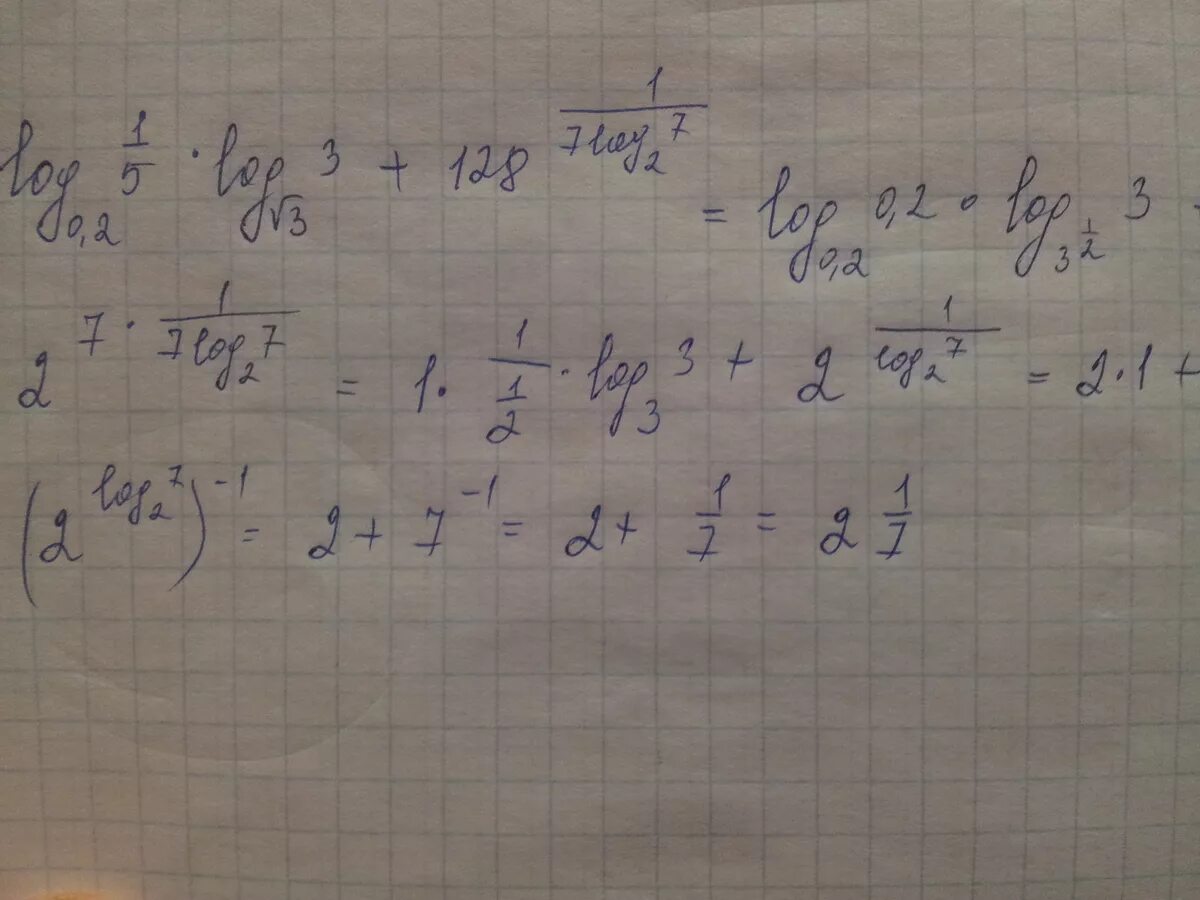 log_{0,2} \frac{1}{5} · log_{√3} 3 + 128^{\frac{1}{7log_2 7}} = log_{0,2} 0,2 · log_{3^{\frac{1}{2}}} 3 +
2^{7 · \frac{1}{7log_2 7}} = 1 · \frac{1}{\frac{1}{2}} · log_3 3 + 2^{\frac{1}{log_2 7}} = 2 · 1 +
(2^{log_2 7})^{-1} = 2 + 7^{-1} = 2 + \frac{1}{7} = 2 \frac{1}{7}